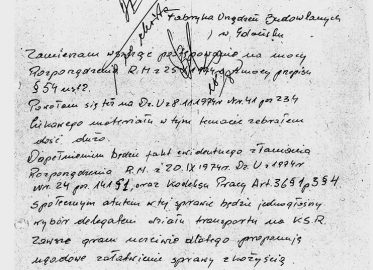 Fabryka Urządzeń Budowlanych
w Gdańsku
Zamierzam wszcząć postępowanie na mocy
Rozporządzenia R.M z 25 1974 mocy przepisu
§ 54 ust 2.
Powołam się też na Dz. U z 8.11.1974r. Nr. 41 poz 234
Ciekawego materiału w tym temacie zebrałem
dość dużo.
Dopełnieniem będzie fakt ewidentnego złamania
Rozporządzenia R.M. z 20.IX 1974r. Dz. U z 1974r
Nr. 24 poz. 141 § 1, oraz Kodeksu Pracy Art. 36 § 1 p 3 § 4
społecznym atutem w tej sprawie będzie jednogłośny
wybór delegatem działu transportu na K.S.R.
Zawsze gram uczciwie dlatego proponuję
ugodowe załatwienie sprawy z korzyścią